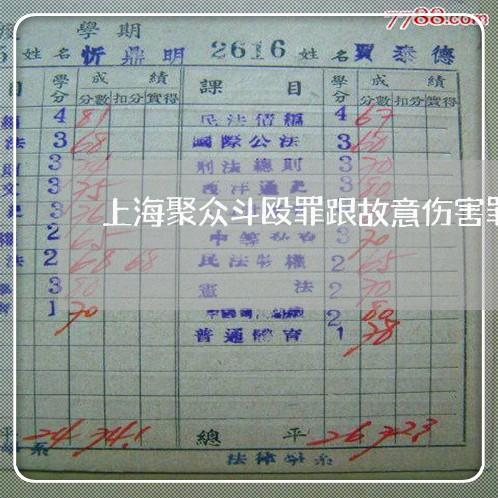 7788.com
學期
姓名 忻鼎明 2616 姓名 賈泰德
目 學分 成績 課目 學分 成績
分數 扣分 實得 分數 扣分 實得
4 81 民法債編 4 67
法 3 68 國際公法 3 60
3 刑法總則 3 70
3 75 西洋通史 3 80
上海聚众斗殴罪跟故意伤害罪
2 65 3 70
法 2 68 68 民法物權 2 65
3 80 憲法 2 70
1 70 2 80
普通體育 1 78
平 24 74.1 總平 26 72.3
系 法律學系